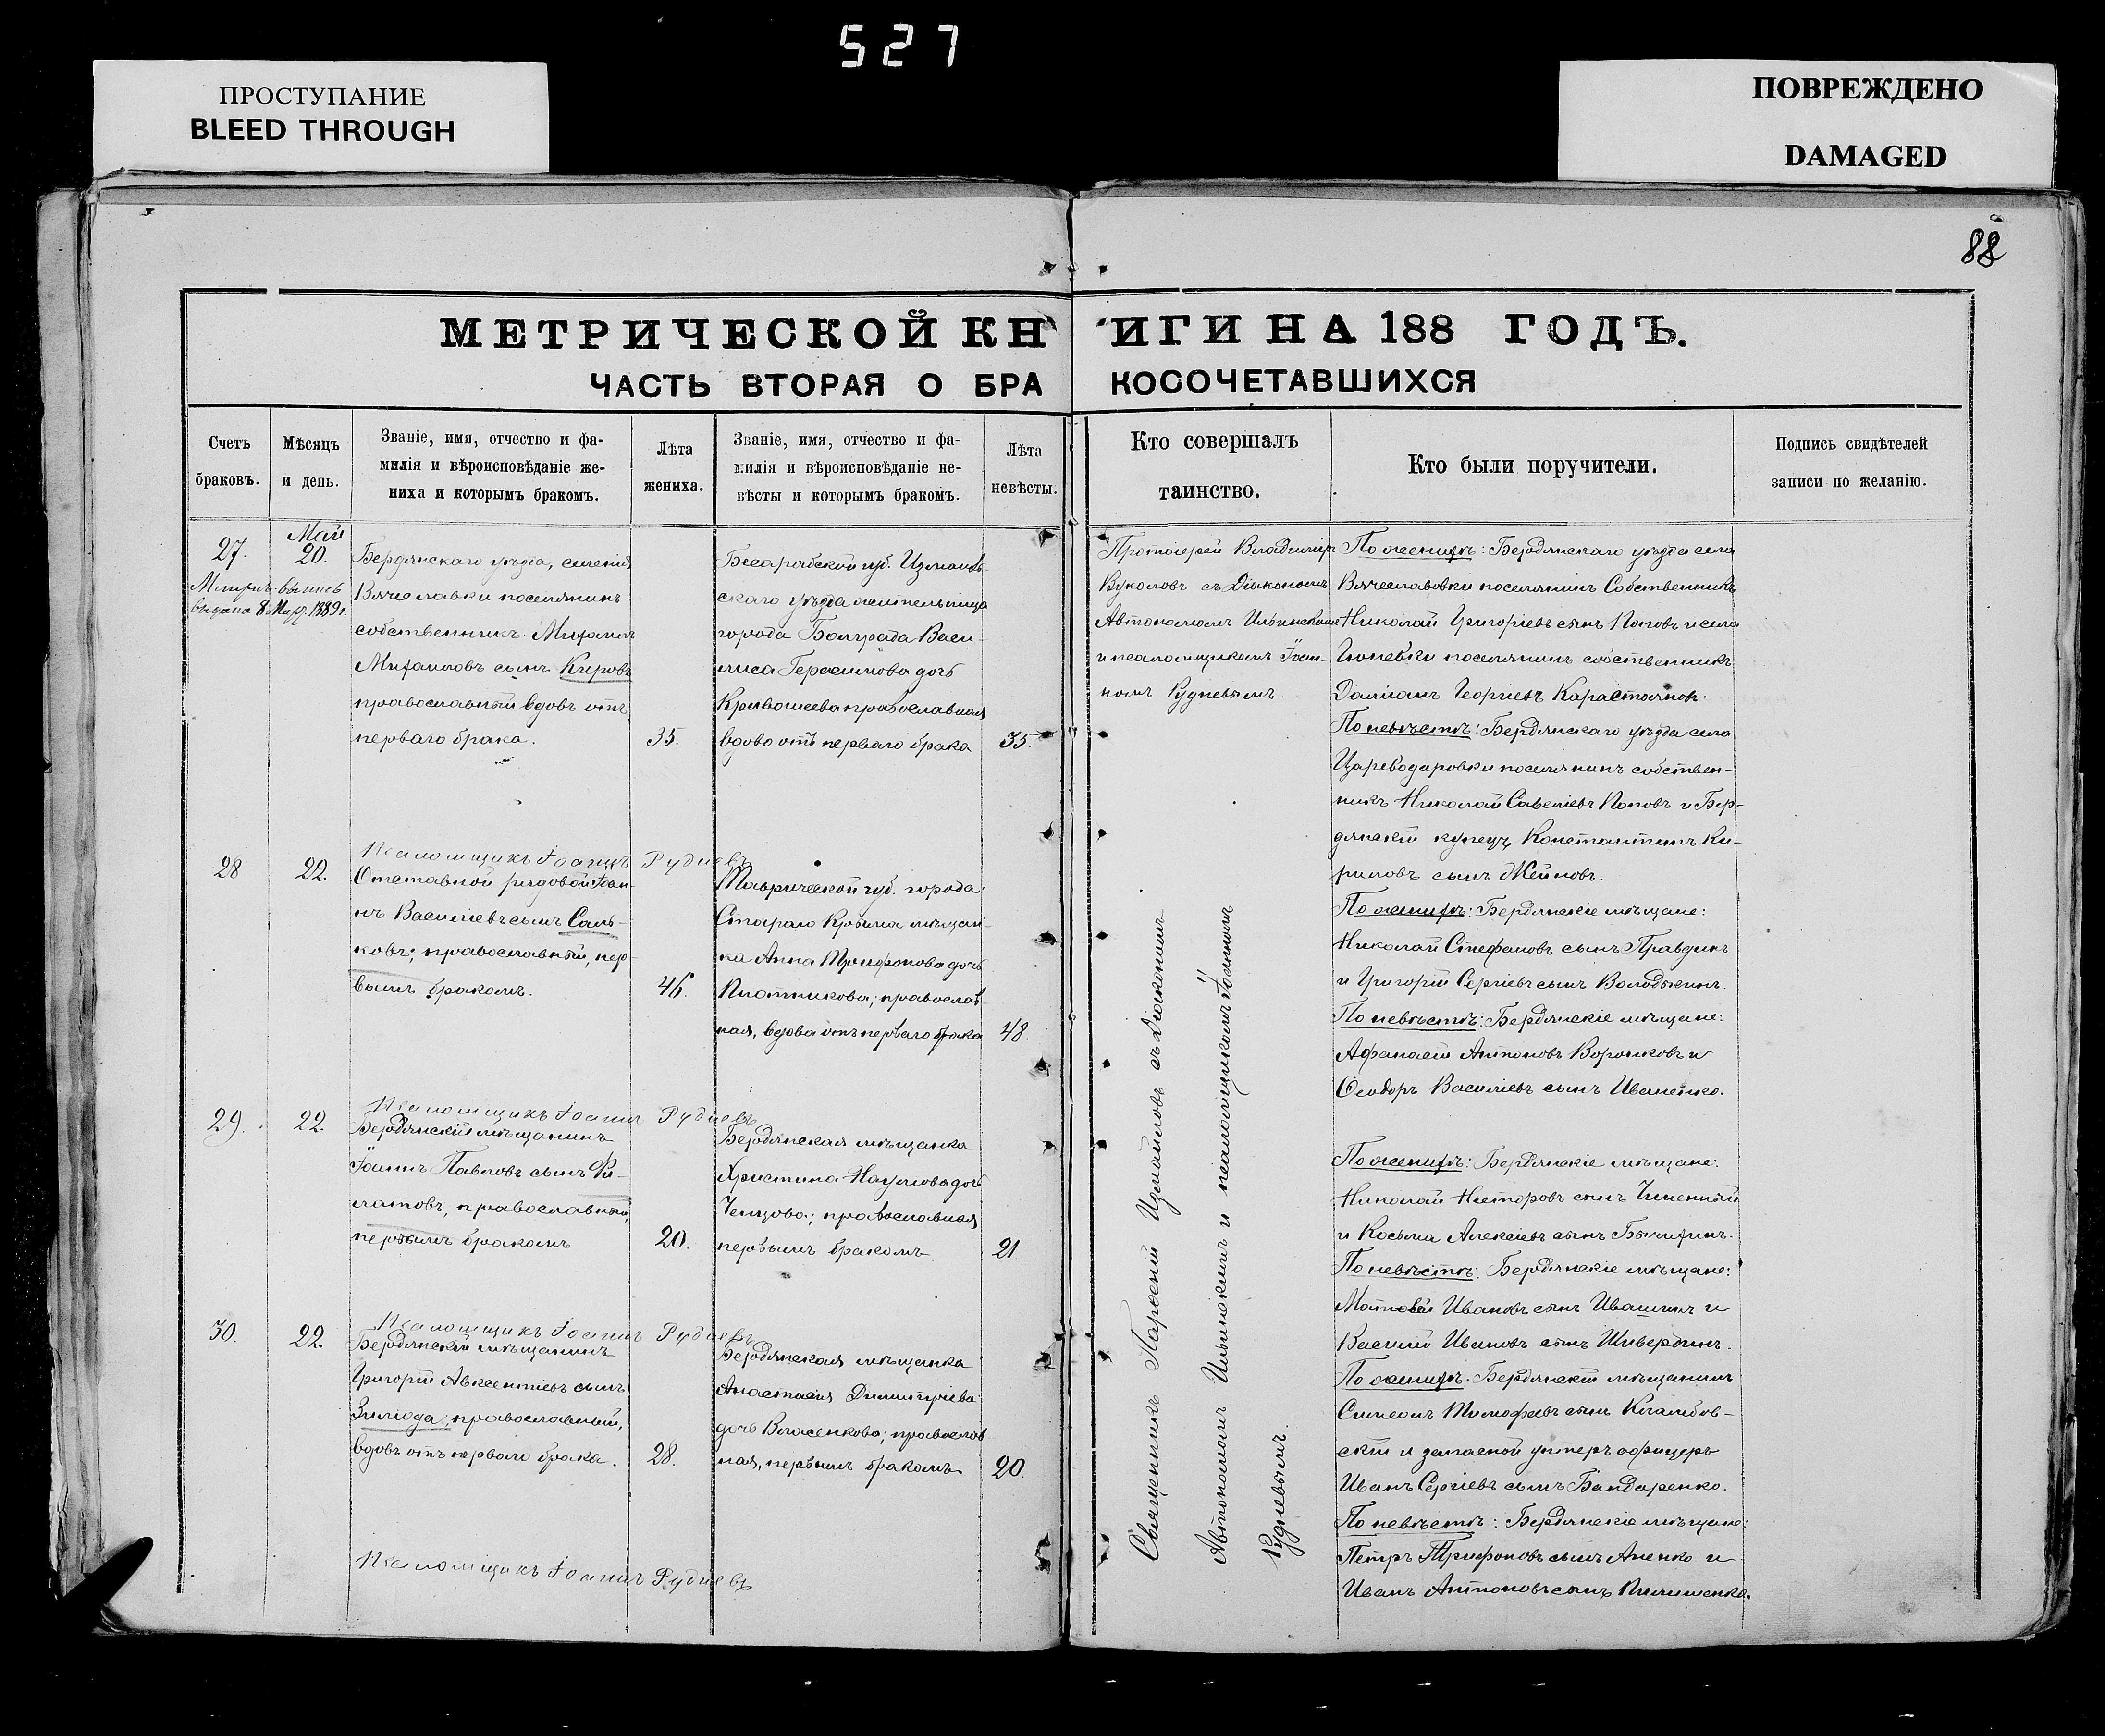 527
ПРОСТУПАНИЕ
BLEED THROUGH
ПОВРЕЖДЕНО
DAMAGED
88
МЕТРИЧЕСКОЙ КНИГИ НА 188 ГОДЪ.
ЧАСТЬ ВТОРАЯ О БРАКОСОЧЕТАВШИХСЯ
Счетъ
браковъ.
Мѣсяцъ
и день.
Званіе, имя, отчество и фа-
милія и вѣроисповѣданіе же-
ниха и которымъ бракомъ.
Лѣта
жениха.
Званіе, имя, отчество и фа-
милія и вѣроисповѣданіе не-
вѣсты и которымъ бракомъ.
Лѣта
невѣсты.
Кто совершалъ
таинство.
Кто были поручители.
Подпись свидѣтелей
записи по желанію.
27.
Май
20.
выдана 8 Мар. 1889 г.
Бердянскаго уѣзда, селенія
Вячеславки поселянинъ
собственникъ Михаилъ
Михаиловъ сынъ Кировъ
православный вдовъ отъ
перваго брака.
35.
Бесарабской губ. Измаиль-
скаго уѣзда жительница
города Болграда Васи-
лиса Герасимова дочь
Кривошеева православная
вдова отъ перваго брака
35.
Протоіерей Владимиръ
Вуколовъ съ Діакономъ
Автономомъ Ильинскимъ
и псаломщикомъ Іоан-
номъ Рудневымъ.
По женихѣ: Бердянскаго уѣзда села
Вячеславовки поселянинъ Собственникъ
Николай Григоріевъ сынъ Поповъ и села
поселянинъ собственникъ
Даміанъ Георгіевъ Карастоянов.
По невѣстѣ: Бердянскаго уѣзда села
Цареводаровки поселянинъ собствен-
никъ Николай Савеліевъ Поповъ и Бер-
дянскій купецъ Константинъ Ки-
риловъ сынъ Жейновъ.
Псаломщикъ Іоаннъ Рудневъ
28
22.
Отставной рядовой Іоан-
нъ Василіевъ сынъ Саль-
ковъ; православный, пер-
вымъ бракомъ.
46.
Таврической губ. города
Стараго Крыма мѣщан-
ка Анна Трифонова дочь
Плотникова; православ-
ная, вдова отъ перваго брака
48.
Священникъ Парѳеній Измайловъ съ Діакономъ
Автономомъ Ильинскимъ и псаломщикомъ Іоанномъ
Рудневымъ.
По женихѣ: Бердянскіе мѣщане:
Николай Стефановъ сынъ Правдинъ
и Григорій Сергіевъ сынъ Володькинъ.
По невѣстѣ: Бердянскіе мѣщане:
Афанасій Антоновъ Воронковъ и
Ѳеодоръ Василіевъ сынъ Иваненко.
Псаломщикъ Іоаннъ Рудневъ
29.
22.
Бердянскій мѣщанинъ
Іоаннъ Павловъ сынъ Фи-
латовъ, православный,
первымъ бракомъ
20.
Бердянская мѣщанка
Христина Наумова дочь
православная
первымъ бракомъ
21.
По женихѣ: Бердянскіе мѣщане:
Николай Несторовъ сынъ
и Косьма Алексіевъ сынъ
По невѣстѣ: Бердянскіе мѣщане:
Матвѣй Ивановъ сынъ Ивашинъ и
Василій Ивановъ сынъ Шивердинъ.
Псаломщикъ Іоаннъ Рудневъ
30.
22.
Бердянскій мѣщанинъ
Григорій Авксентіевъ сынъ
православный,
вдовъ отъ перваго брака.
28.
Бердянская мѣщанка
Анастасія Димитріева
дочь Власенкова; православ-
ная, первымъ бракомъ
20.
По женихѣ: Бердянскій мѣщанинъ
Симеонъ Тимофеевъ сынъ
и запасной унтеръ офицеръ
Иванъ Сергіевъ сынъ Бандаренко.
По невѣстѣ: Бердянскіе мѣщане:
Петръ Трифоновъ сынъ и
Иванъ Антоновъ сынъ
Псаломщикъ Іоаннъ Рудневъ